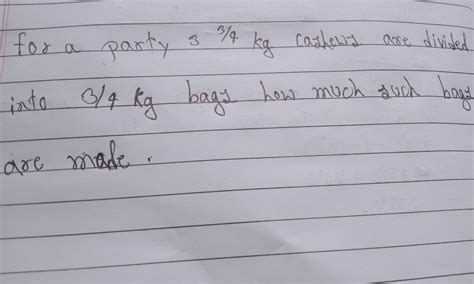 for a party 3 3/4 kg cashews are divided
into 3/4 kg bags how much such bags
are made.